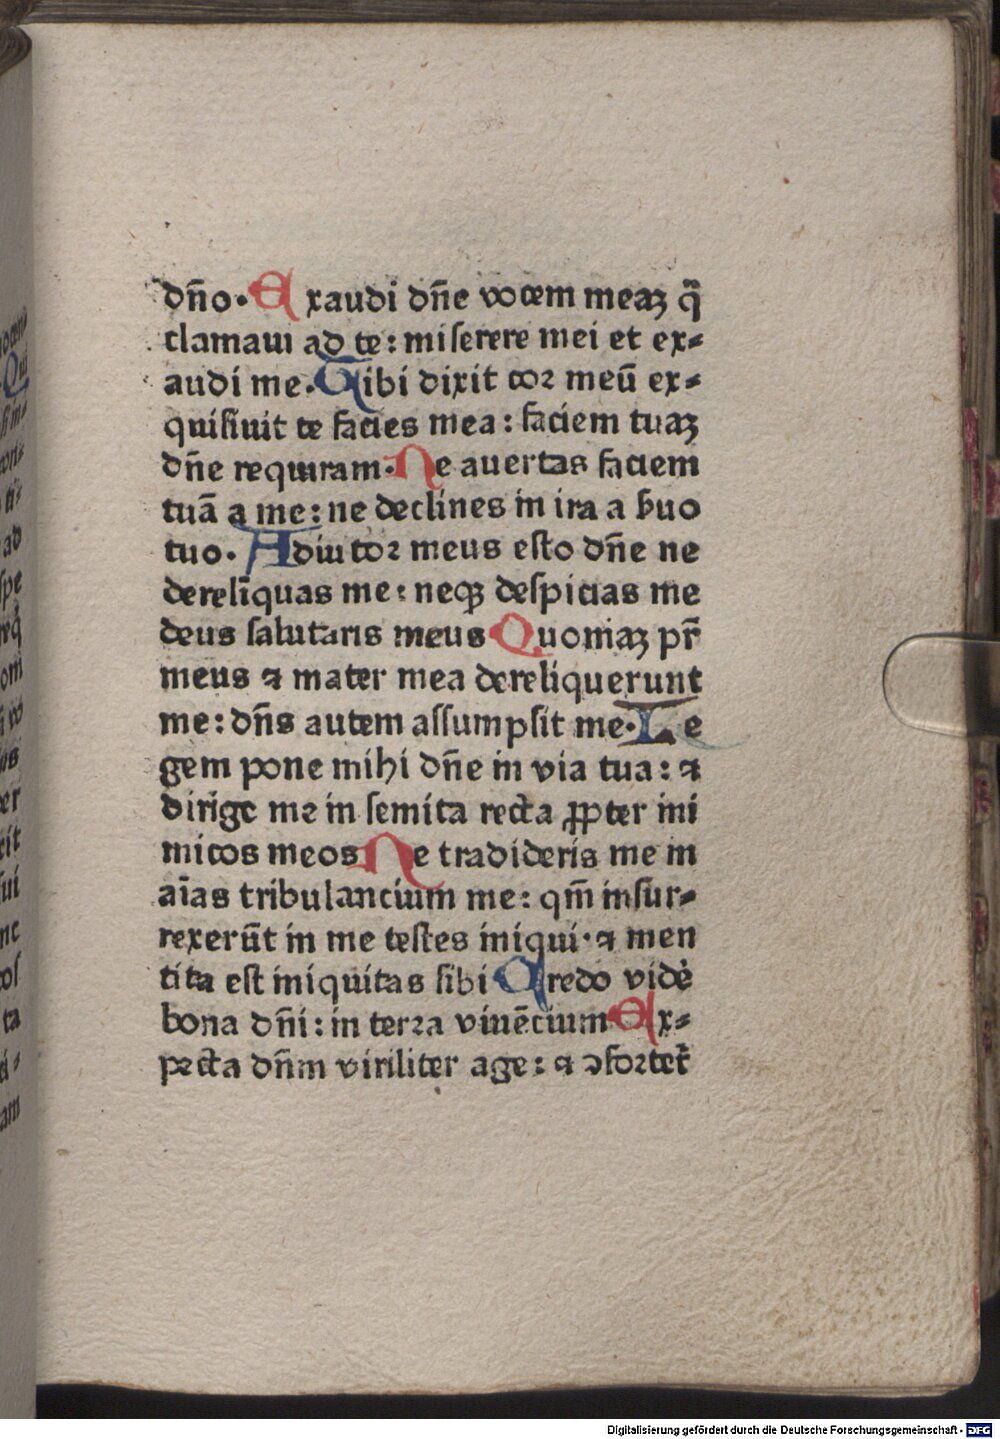 dn̄o. Exaudi dn̄e vocem meaꝫ q̄
clamaui ad te: miserere mei et ex-
audi me. Tibi dixit cor meū ex-
quisiuit te facies mea: faciem tuaꝫ
dn̄e requiram. Ne auertas faciem
tuā a me: ne declines in ira a ẜuo
tuo. Adiutor meus esto dn̄e ne
derelīquas me: neqꝫ despicias me
deus salutaris meus Quoniaꝫ pr̄
meus ⁊ mater mea dereliquerunt
me: dn̄s autem assumpsit me. Le
gem pone mihi dn̄e in via tua: ⁊
dirige me in semita recta ꝓpter ini
micos meos Ne tradideris me in
aīas tribulancium me: qm̄ insur-
rexerūt in me testes iniqui. ⁊ men
tita est iniquitas sibi Credo vidē
bona dn̄i: in terra viuēcium Ex-
pecta dn̄m viriliter age: ⁊ ꝯforteť
Digitalisierung gefördert durch die Deutsche Forschungsgemeinschaft - DFG